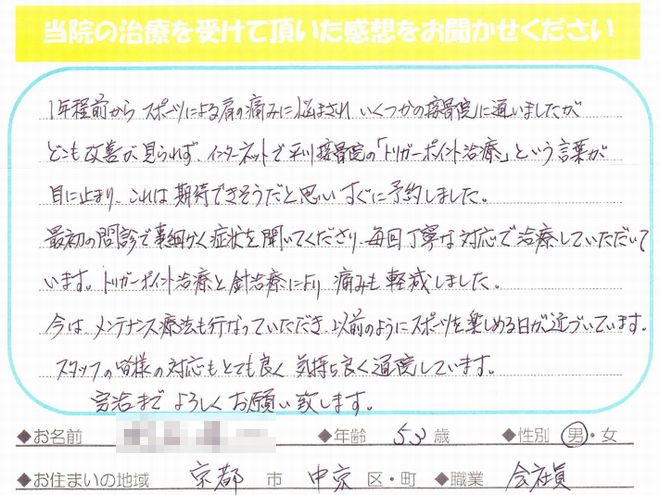 当院の治療を受けて頂いた感想をお聞かせください
1年程前から スポーツによる肩の痛みに悩まされ いくつかの接骨院に通いましたが
どこも改善が見られず、インターネットで平川接骨院の「トリガーポイント治療」という言葉が
目に止まり、これは期待できそうだと思い すぐに予約しました。
最初の問診で事細かく症状を聞いてくださり、毎回丁寧な対応で治療していただいて
います。トリガーポイント治療と針治療により 痛みも軽減しました。
今は、メンテナンス療法も行なっていただき、以前のようにスポーツを楽しめる日が近づいています。
スタッフの皆様の対応もとても良く 気持ち良く通院しています。
完治まで よろしく お願い致します。
◆お名前 ◆年齢 53 歳 ◆性別 男・女
◆お住まいの地域 京都 市 中京 区・町 ◆職業 会社員